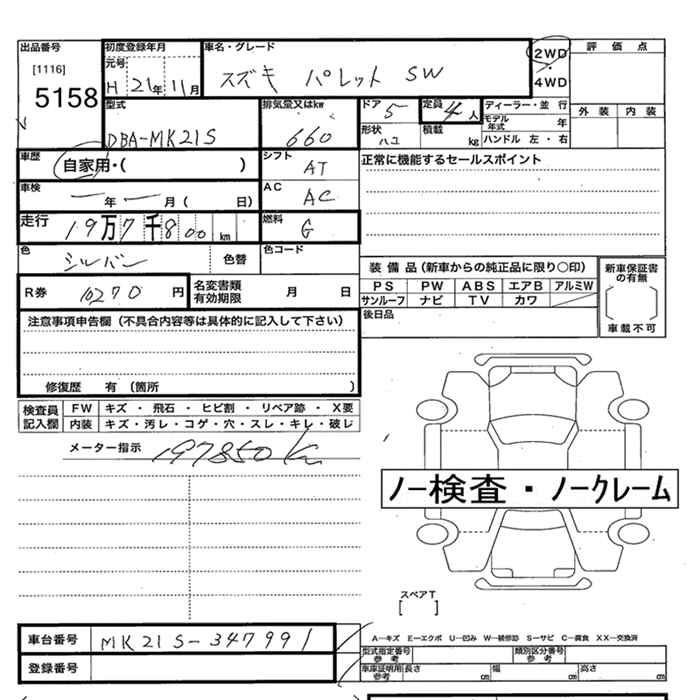 出品番号 初度登録年月 車名・グレード 2WD 評価点
[1116] 元号 ・
5158 H 21年 11月 スズキ パレット SW 4WD
型式 排気量又はkw ドア 5 定員 4人 ディーラー・並行 外装 内装
DBA-MK21S 660 形状 積載 kg モデル年式 年
ハンドル 左・右
車歴 シフト 正常に機能するセールスポイント
自家用・( ) AT
車検 年 月 ( 日) AC AC
走行 19万7千800 km 燃料 G
色 シルバー 色替 色コード
装備品(新車からの純正品に限り○印) 新車保証書の有無
R券 10270 円 名変書類有効期限 月 日 PS PW ABS エアB アルミW
サンルーフ ナビ TV カワ
注意事項申告欄(不具合内容等は具体的に記入して下さい) 後日品 車載不可
修復歴 有(箇所 )
検査員 FW キズ・飛石・ヒビ割・リペア跡・X要
記入欄 内装 キズ・汚レ・コゲ・穴・スレ・キレ・破レ
メーター指示 197850 km
ノー検査・ノークレーム
スペアT
[ ]
車台番号 MK21S-347991
A―キズ E―エクボ U―凹み W―補修跡 S―サビ C―腐食 XX―交換済
型式指定番号 参考 類別区分番号 参考
登録番号 車庫証明用 参考 長さ cm 幅 cm 高さ cm